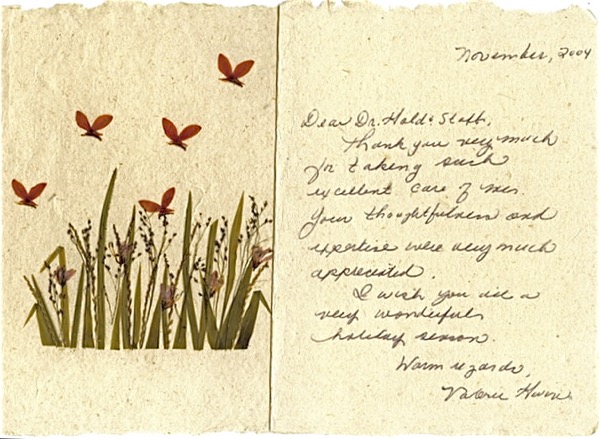 November, 2004
Dear Dr. Hold & Staff,
Thank you very much
for taking such
excellent care of me.
Your thoughtfulness and
expertise were very much
appreciated.
I wish you all a
very wonderful
holiday season.
Warm regards,
Valerie